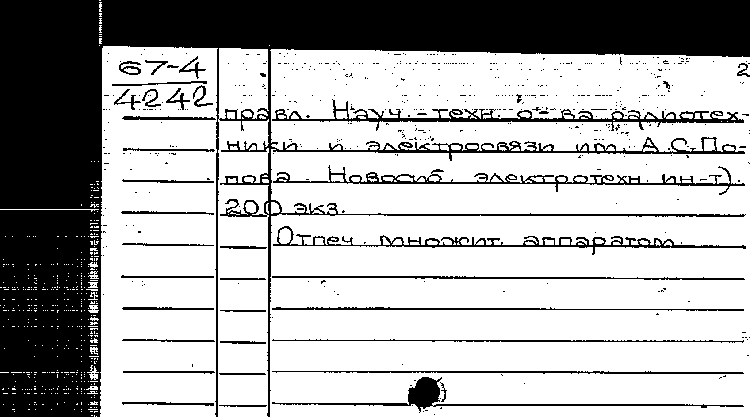 67-4
4242
2
правл. Науч.-техн. о-ва радиотех-
ники и электросвязи им. А.С. По-
пова. Новосиб. электротехн. ин-т).
200 экз.
Отпеч. множит. аппаратом